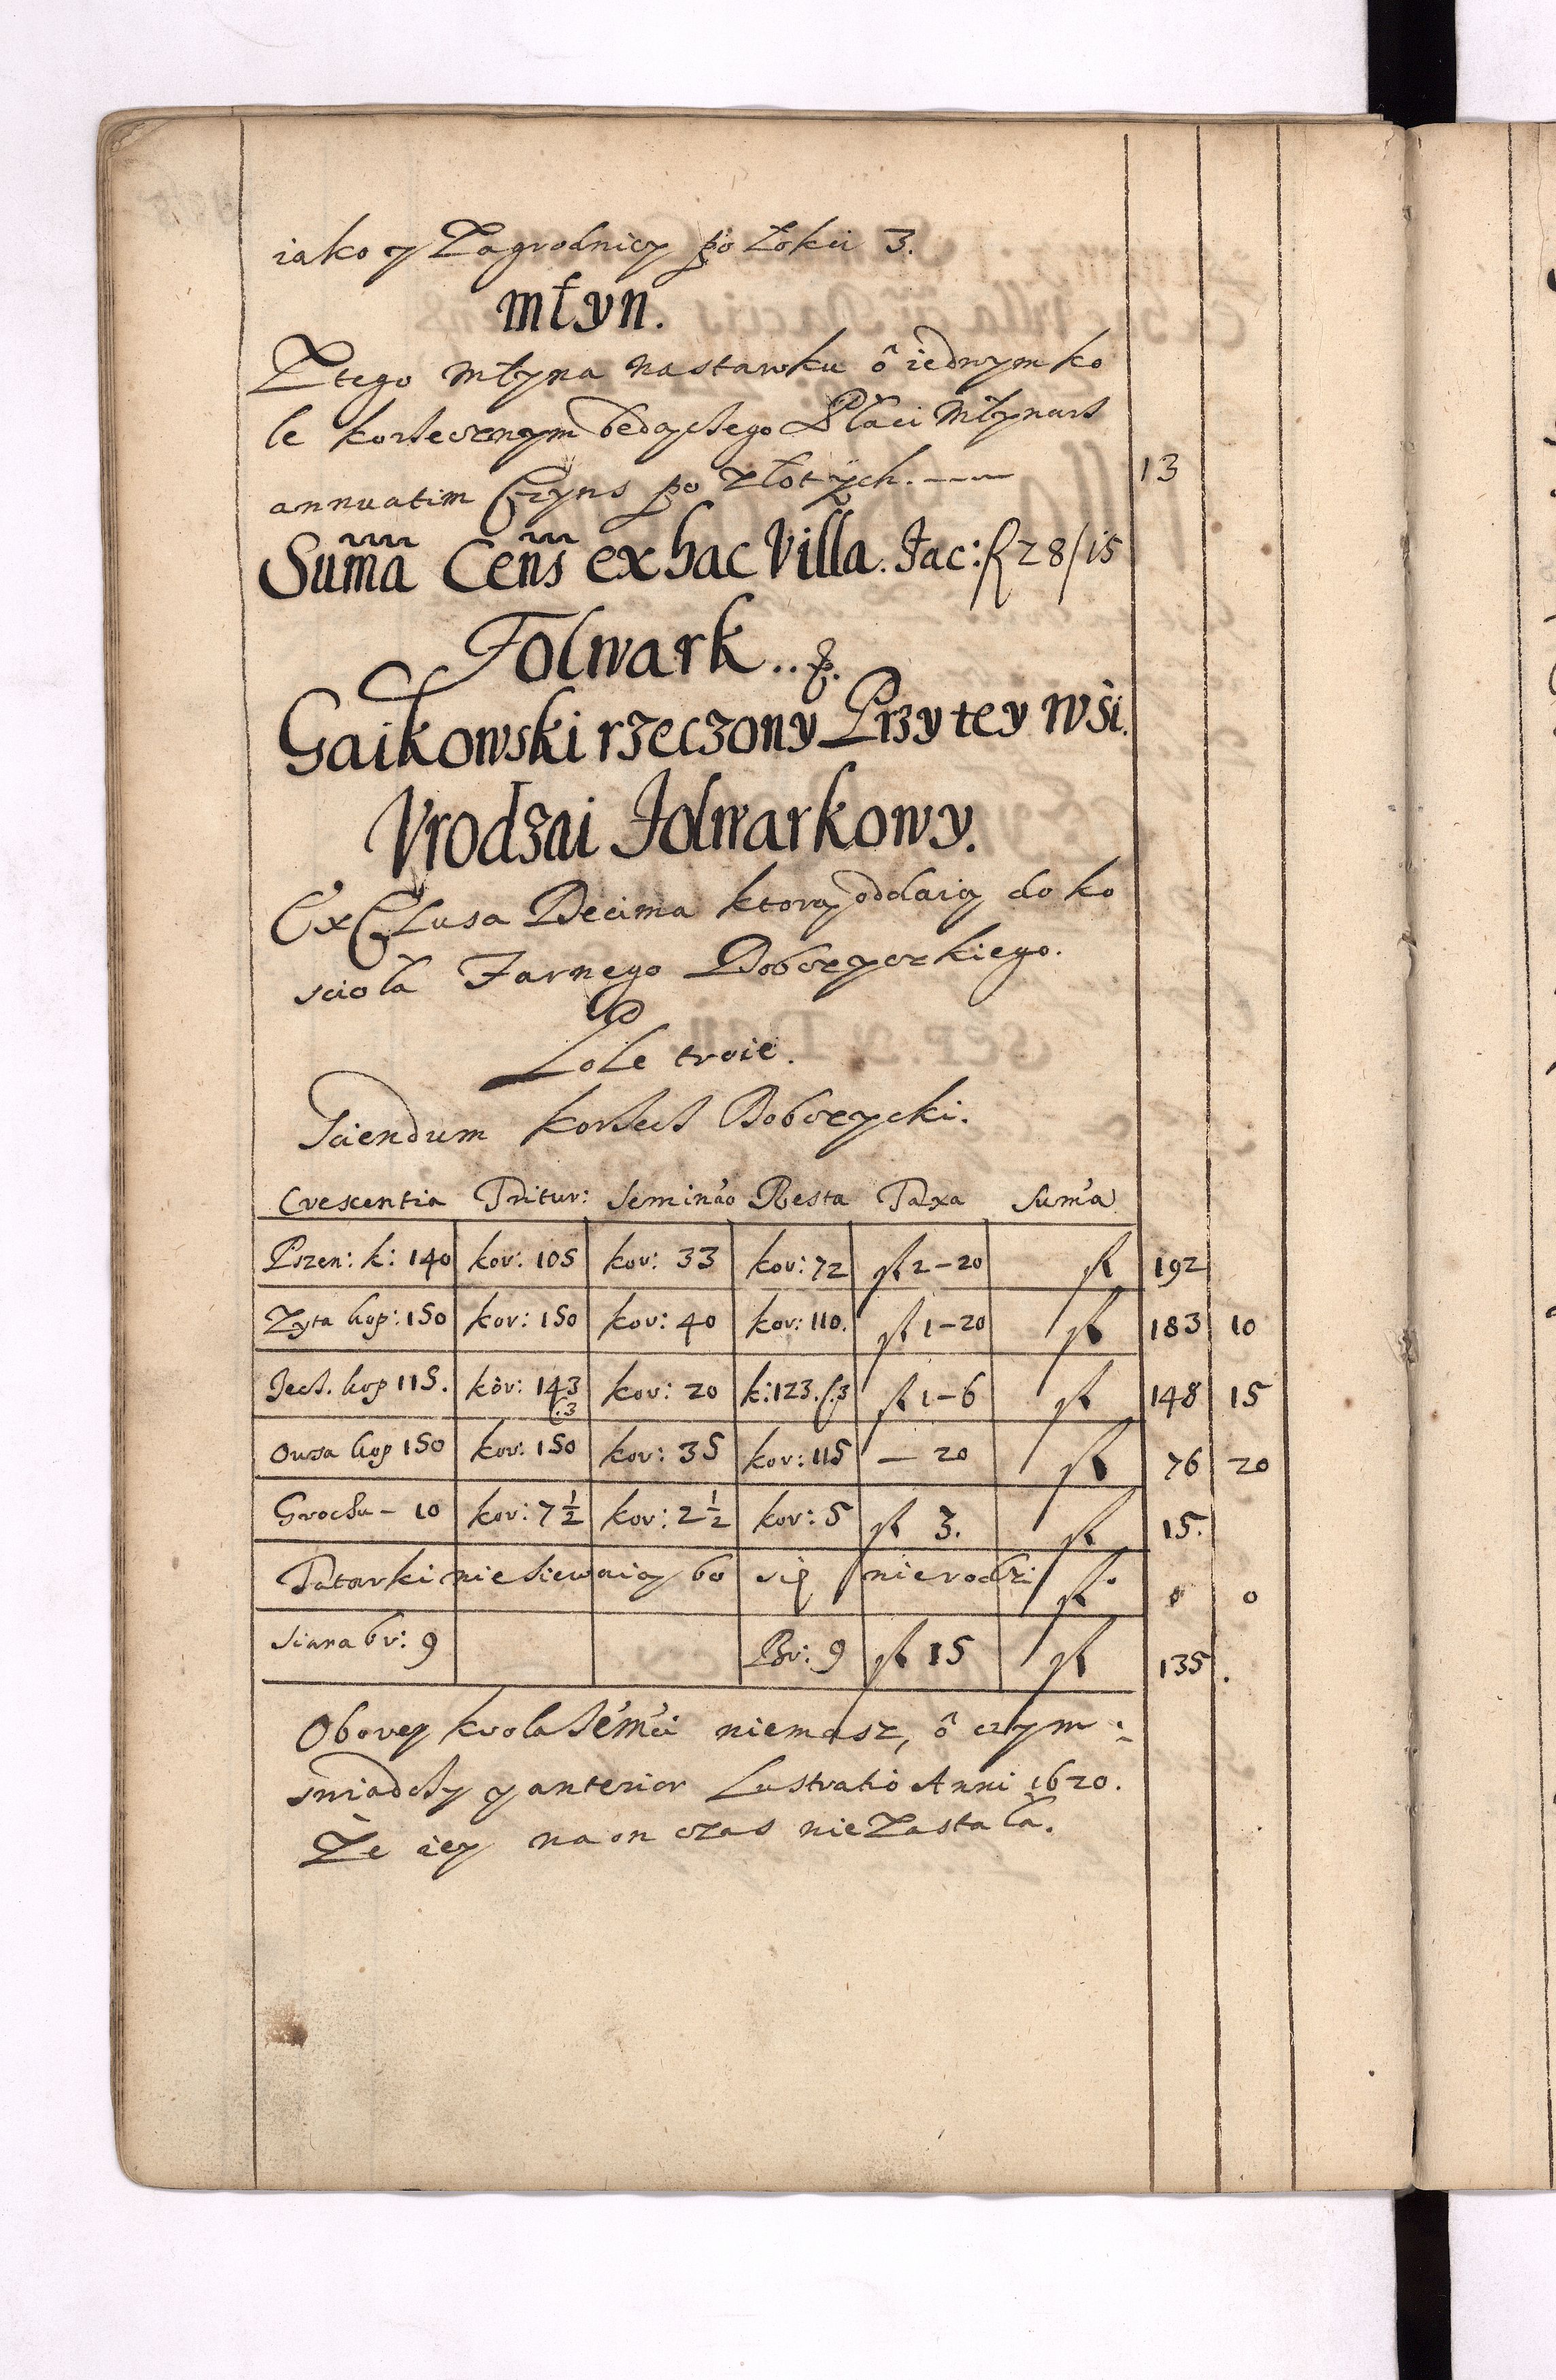 iako y Zagrodnicy po Łokci 3.
Młyn.
Z tego Młyna na stawku ô iednym ko
le korzecznym będącego Płaci Młynarz
annuatim Czyns po złotych. ---- 13
Suma Cens ex hac Villa. Fac: fl 28/15
Folwark...
Gaikowski rzeczony Przy tey wsi.
Vrodzai Folwarkowy.
Exclusa Decima ktorą oddaią do ko
scioła Farnego Dobczyczkiego.
Pole troie.
Sciendum korzecz Dobczycki.
Crescentia Tritur: Seminao Resta Taxa Suma
Pszen: k: 140 kor: 105 kor: 33 kor: 72 fl 2-20 fl 192
Zyta kop: 150 kor: 150 kor: 40 kor: 110. fl 1-20 fl 183 10
Jecz. kop 115. kor: 143 c.3 kor: 20 k: 123. c.3 fl 1-6 fl 148 15
Owsa kop 150 kor: 150 kor: 35 kor: 115 - 20 fl 76 20
Grochu - 10 kor: 7 1/2 kor: 2 1/2 kor: 5 fl 3. fl 15.
Tatarki niesiewaią bo się nierodzi fl. 0 0
Siana br: 9 Br: 9 fl 15 fl 135.
Obory krola Jemci niemasz, ô czym
swiadczy y anterior Lustratio Anni 1620.
Że iey na on czas nie Zastała.